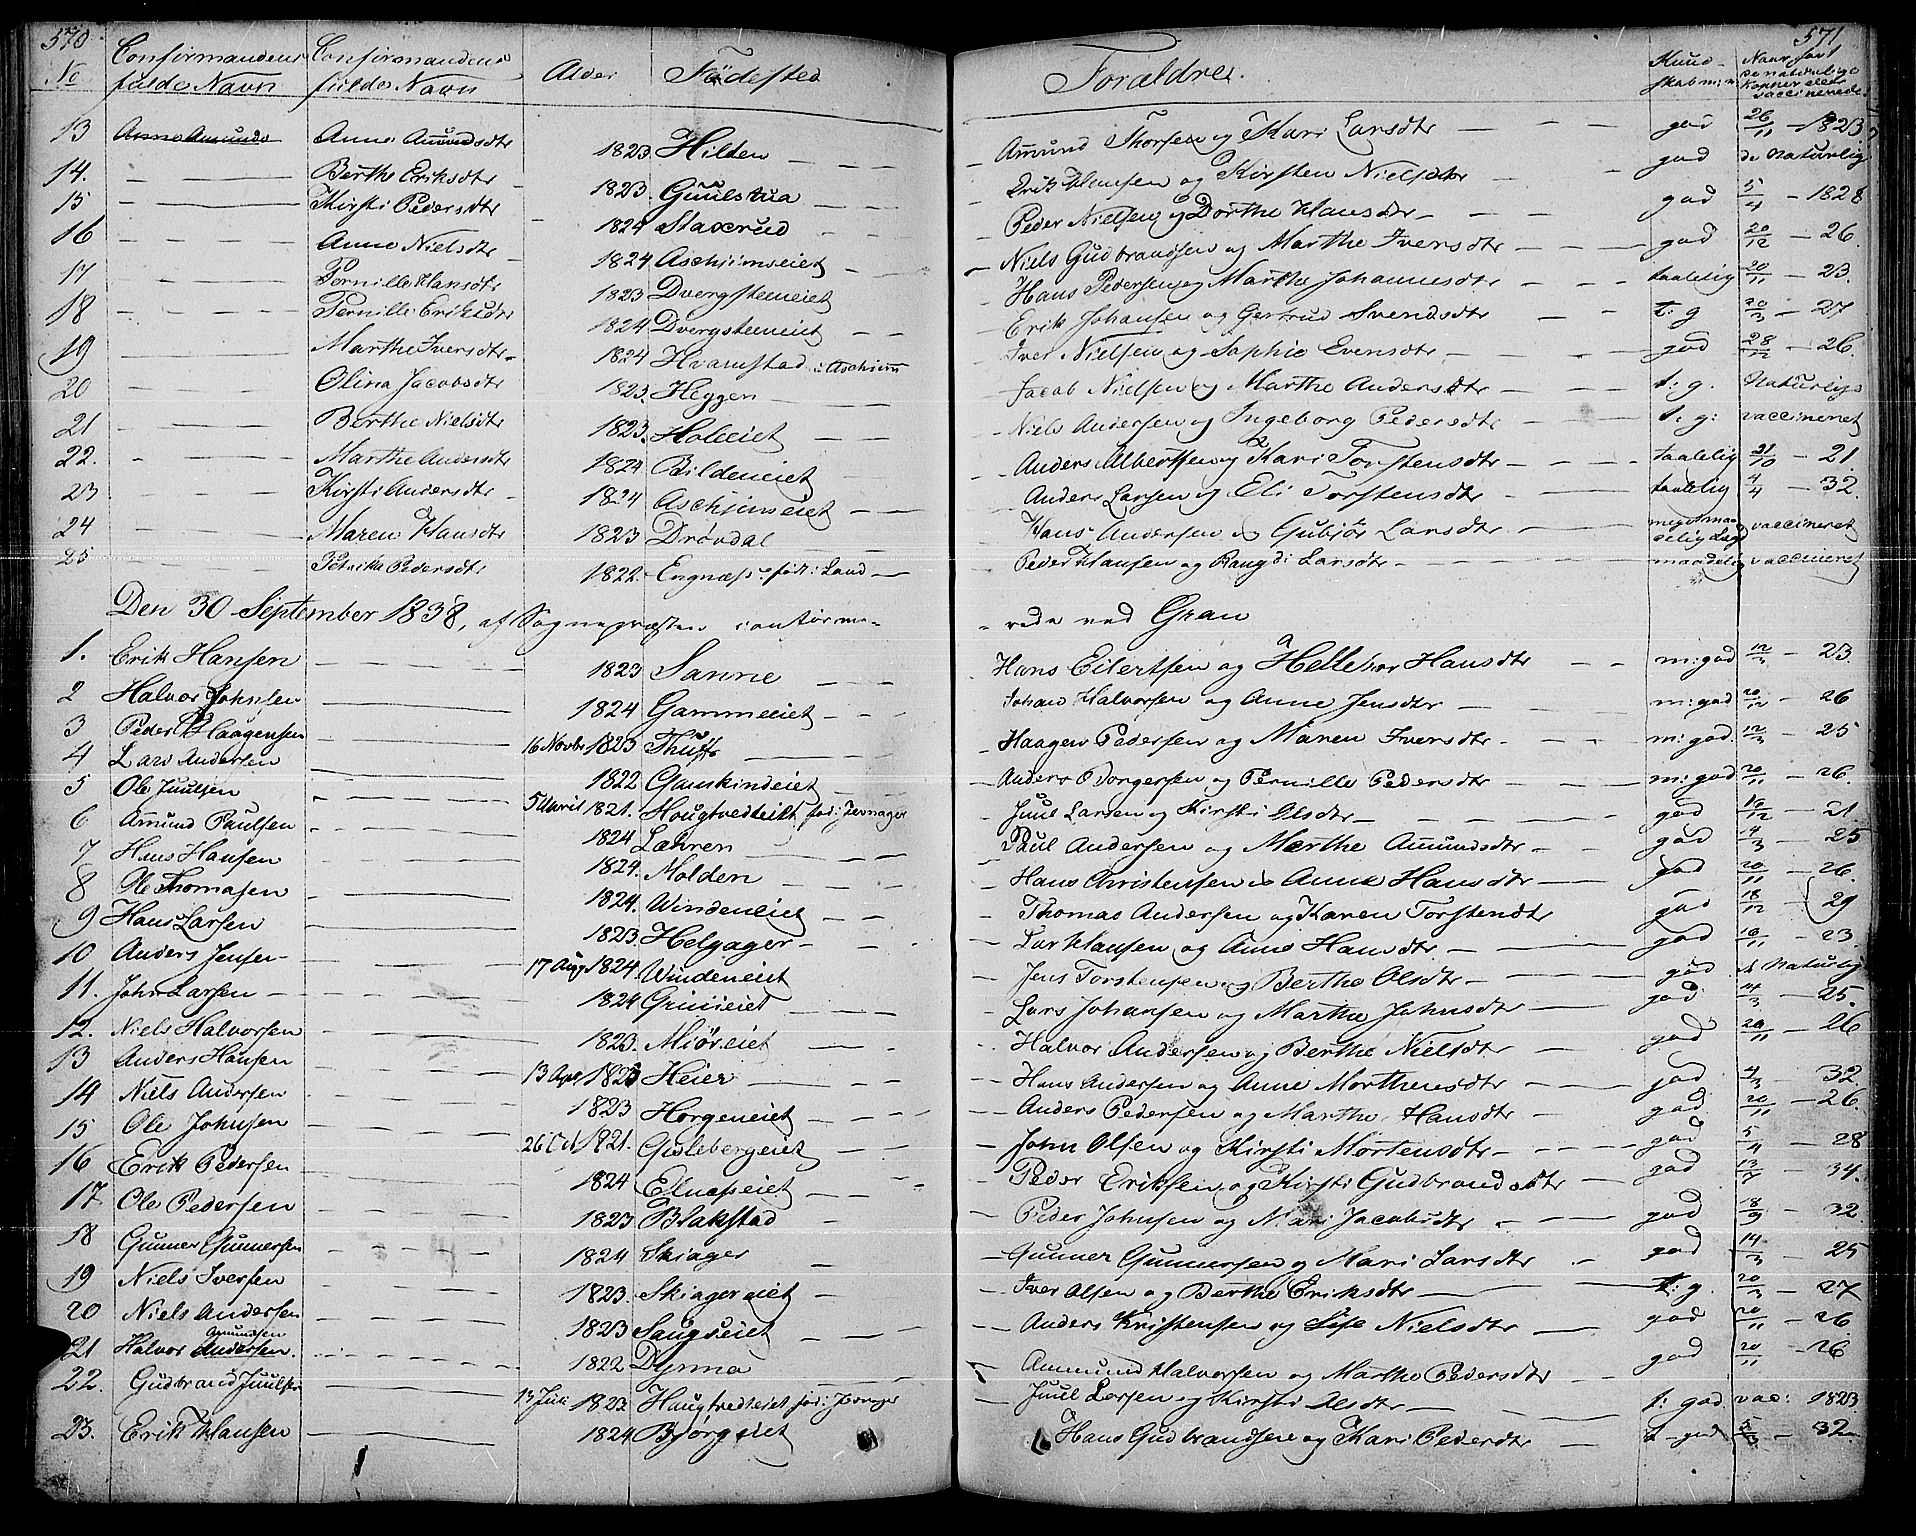 570 571
No Confirmandens fulde Navn Confirmandens fulde Navn Alder Fødested Forældre. Kundskab m: m Naar havt de naturlige Kopper eller vaccinerede
13 Anne Amunds Anne Amundsdtr 1823. Hilden Amund Thorsen og Kari Larsdtr god 26/11 - 1823
14. Berthe Eriksdtr 1823. Guulstua Erik Hansen og Kirsten Nielsdtr god de Naturlig
15 Kirsti Pedersdtr 1824 Staxrud Peder Nielsen og Dorthe Hansdtr god 5/4 - 1828
16 Anne Nielsdtr 1824 Aschimseiet Niels Gudbrandsen og Marthe Iversdtr god 20/12 - 26.
17 Pernille Hansdtr 1823 Dvergsteneiet Hans Pedersen og Marthe Johannesdtr taalelig 20/11 - 23.
18 Pernille Eriksdtr 1824 Dvergsteneiet Erik Johansen og Gertrud Svendsdtr t: g 20/3 - 27
19 Marthe Iversdtr 1824 Hvamstad i Aschim Iver Nielsen og Sophie Evensdtr god 28/12 - 26.
20 Olina Jacobsdtr 1823. Heggen Jacob Nielsen og Marthe Andersdtr t: g. Naturlige
21 Berthe Nielsdtr 1823. Holeeiet Niels Andersen og Ingeborg Pedersdtr t: g: vaccineret
22. Marthe Andersdtr 1824 Bildeneiet Anders Albertsen og Kari Torstensdtr taalelig 21/10 - 21.
23 Kirsti Andersdtr 1824 Aschimseiet Anders Larsen og Eli Torstensdtr taalelig 4/4 - 32.
24 Maren Hansdtr 1823 Drøvdal Hans Andersen og Gubjør Larsdtr vaccineret
25 Pedersdtr 1822. Engnæss født i Land Peder Hansen og Rangdi Larsdtr maadelig vaccineret
Den 30 September 1838, af Sognepræsten confirmerede ved Gran
1. Erik Hansen 1823 Sanne Hans Eilertsen og Hellebor Hansdtr m: god 12/3 - 23.
2 Halvor Johnsen 1824 Gammeeiet Johan Halvorsen og Anne Jensdtr m: god 20/12 - 26
3 Peder Haagensen 16 Novbr 1823 Haagen Pedersen og Maren Iversdtr m: god 12/3 - 25
4 Lars Andersen 1822 Gamkindeiet Anders Borgersen og Pernille Pedersdtr m: god 20/11 - 26.
5 Ole Juulsen 5 April 1821. Hougtvedteiet fød i Jevnager Juul Larsen og Kirsti Olsdtr god 16/12 - 21.
6 Amund Paulsen 1824 Læhren Paul Andersen og Marthe Amundsdtr god 4/3 - 25
7 Hans Hansen 1824. Molden Hans Christensen og Anne Hansdtr god 20/11 - 26.
8 Ole Thomasen 1824. Windeneiet Thomas Andersen og Karen Torstendtr god 18/12 - 29
9 Hans Larsen 1823. Helgager Lars Hansen og Anne Hansdtr god 16/11 - 23.
10 Anders Jensen 17 Aug 1824 Windeneiet Jens Torstensen og Berthe Olsdtr god d. Naturlig
11. John Larsen 1824 Lars Johansen og Marthe Johnsdtr god 14/3 - 25.
12. Niels Halvorsen 1823. Miøreiet Halvor Andersen og Berthe Nielsdtr god 20/11 - 26
13 Anders Hansen 13 Apr 1823 Heier Hans Andersen og Anne Morthensdtr god 4/3 - 32.
14 Niels Andersen 1823 Horgeneiet Anders Pedersen og Marthe Hansdtr god 20/11 - 26.
15 Ole Johnsen 26 Oct 1821. Gislebergeiet John Olsen og Kirsti Mortensdtr god 5/4 - 28
16 Erik Pedersen 1824 Elnæseiet Peder Eriksen og Kirsti Gudbrandsdtr god - 34.
17. Ole Pedersen 1823 Blakstad Peder Johnsen og Mari Jacobsdtr god 18/9 - 32
18 Gunner Gunnersen 1824 Skiager Gunner Gunnersen og Mari Larsdtr god 14/3 - 25
19 Niels Iversen 1823. Skiagereiet Iver Olsen og Berthe Eriksdtr t: g. 20/3 - 27
20 Niels Andersen 1823 Saugseiet Anders Kristensen og Lise Nielsdtr god 20/11 - 26
21 Halvor Andersen. Amundsen 1822 Dynna Ammund Halvorsen og Marthe Pedersdtr god 20/11 - 26
22. Gudbrand Juulsen 13 Juli 1823 Haugtvedteiet fød: i Jevnager Juul Larsen og Kirsti Olsdtr t: god vac: 1823
23. Erik Hansen 1824 Bjørgeiet Hans Gudbrandsen og Kari Pedersdtr t - god 5/3 - 32